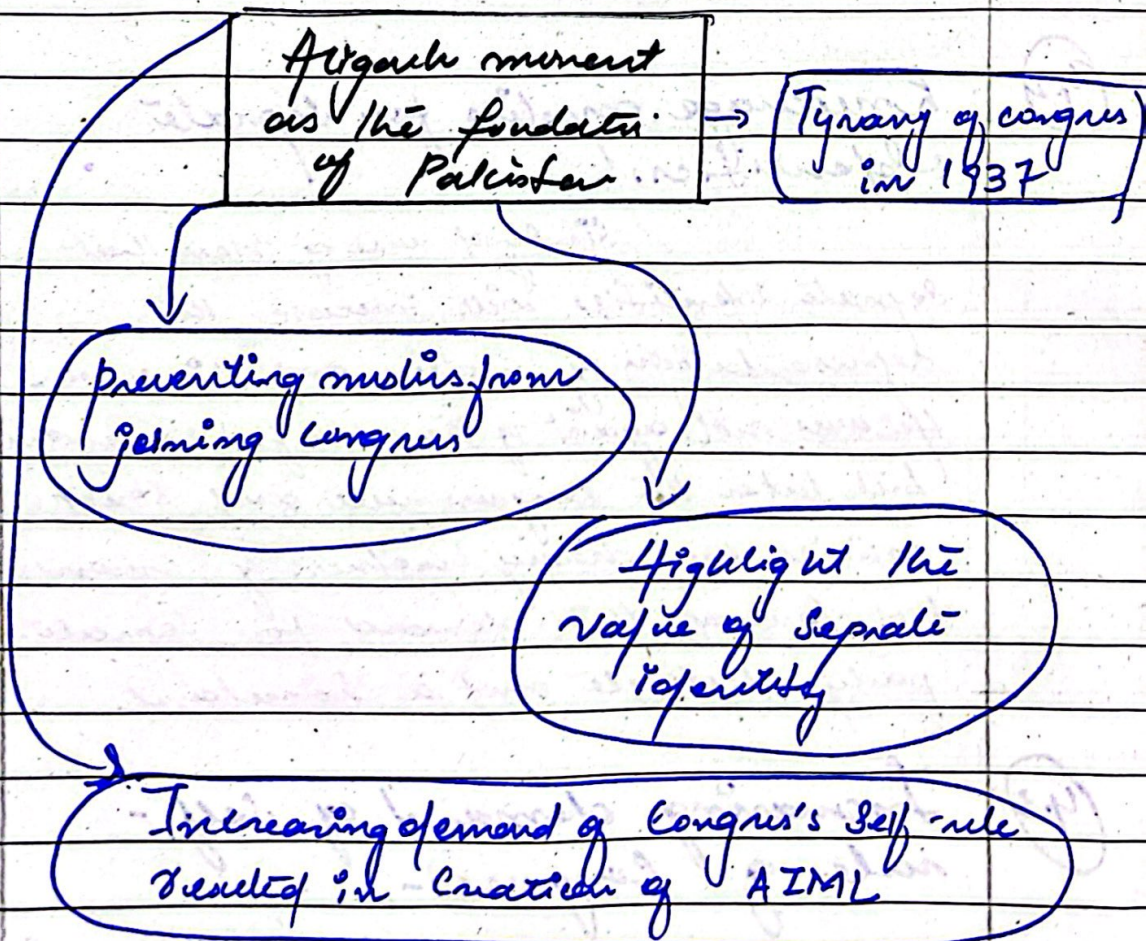 Aligarh movement
as the foundation
of Pakistan
→ Tyranny of congress
in 1937
preventing muslims from
joining congress
Highlight the
value of Seprate
identity
Increasing demand of Congress's Self-rule
resulted in Creation of AIML